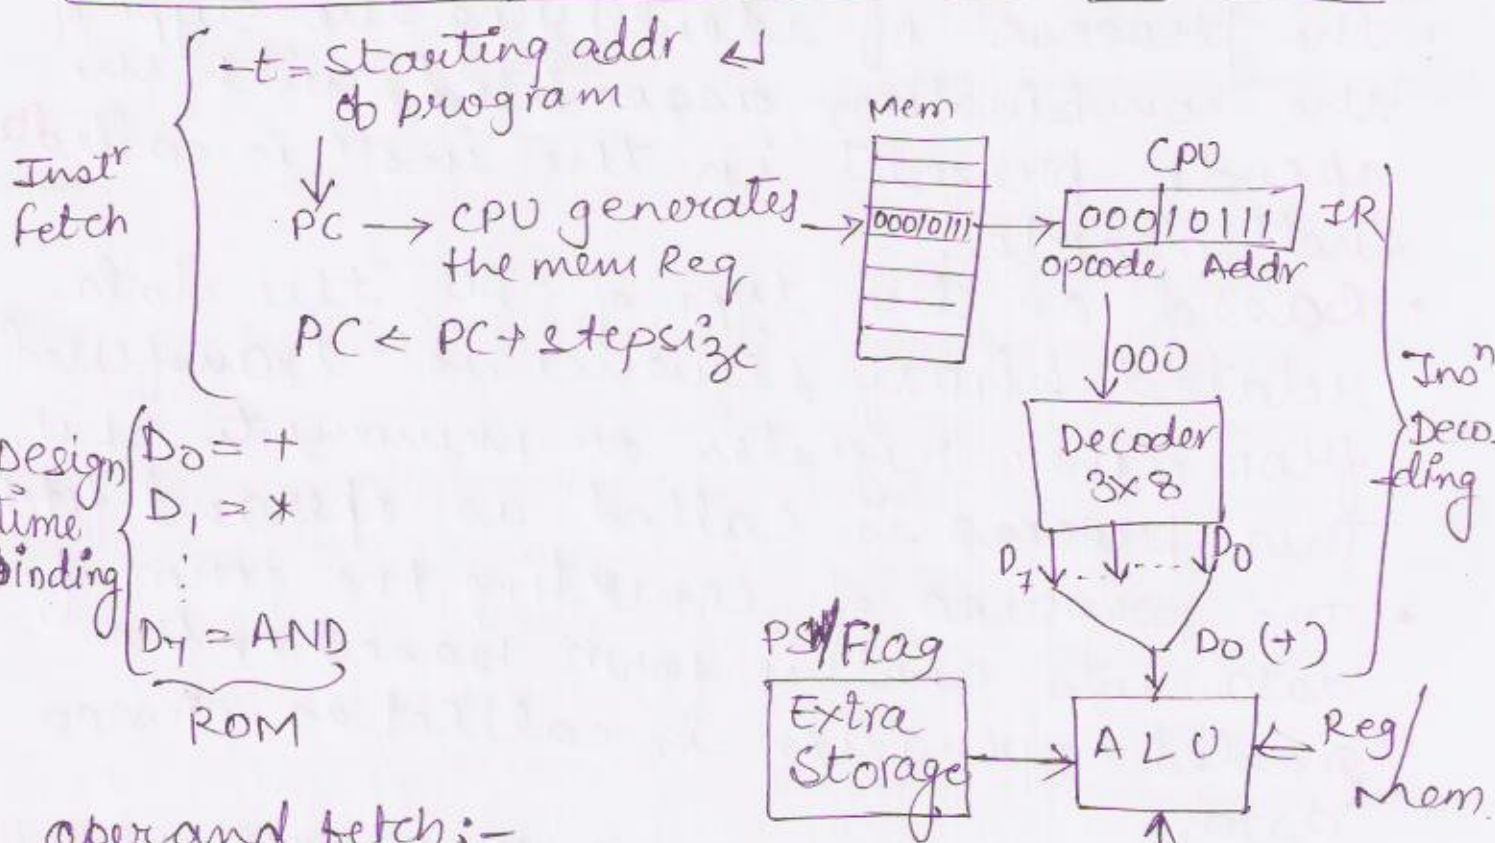 -t = Starting addr ↵
of program
Instr
fetch
PC → CPU generates
the mem Req
PC ← PC + stepsize
Mem
00010111
CPU
000|10111 IR
opcode Addr
000
Decoder
3x8
D7 ..... D0
D0 (+)
Insn
Deco-
ding
Design
time
binding
D0 = +
D1 = *
⋮
D7 = AND
ROM
PSW/Flag
Extra
Storage
ALU
Reg/
Mem.
operand fetch:-